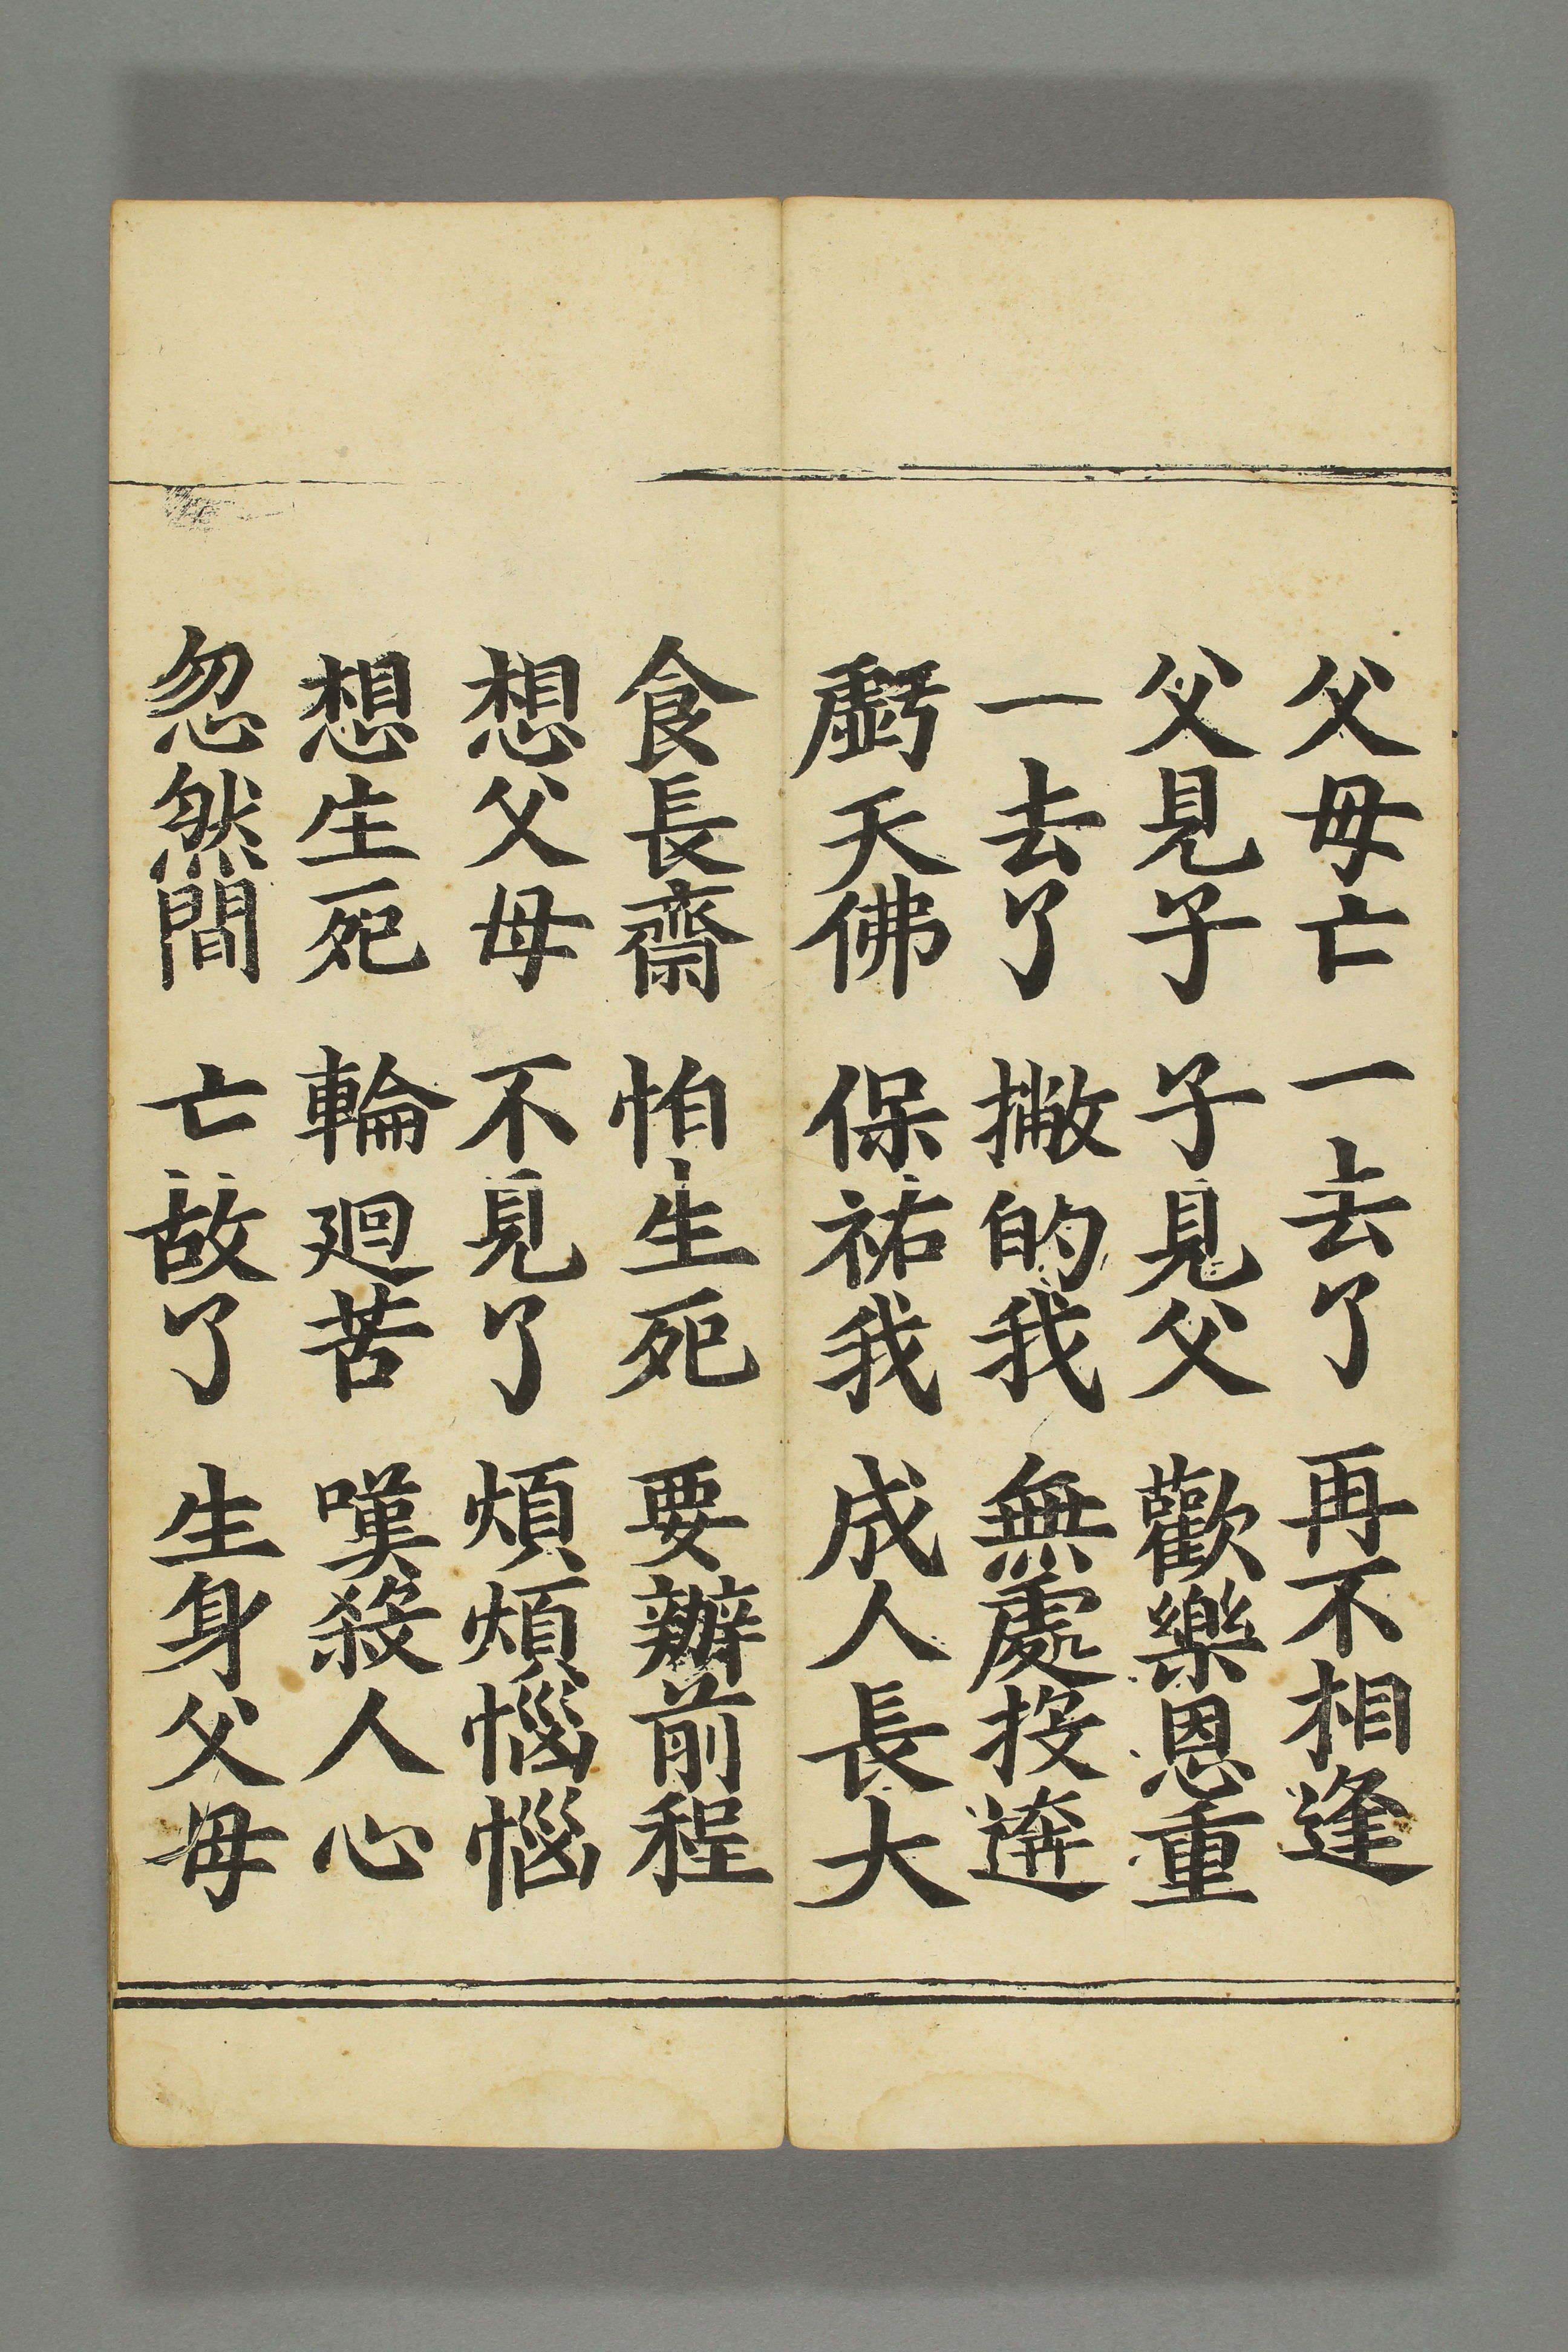 父母亡 一去了 再不相逢
父見子 子見父 歡樂恩重
一去了 撇的我 無處投逩
虧天佛 保祐我 成人長大
食長齋 怕生死 要辦前程
想父母 不見了 煩煩惱惱
想生死 輪廻苦 嘆殺人心
忽然間 亡故了 生身父母